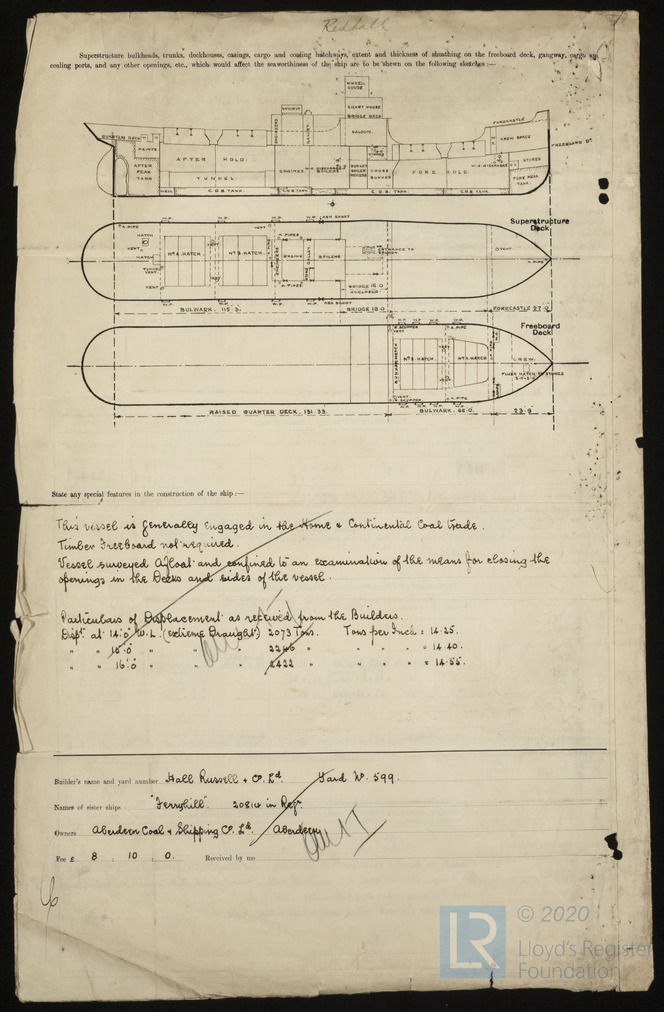 Redhall
Superstructure bulkheads, trunks, deckhouses, casings, cargo and coaling hatchways, extent and thickness of sheathing on the freeboard deck, gangway, cargo and
coaling ports, and any other openings, etc., which would affect the seaworthiness of the ship are to be shewn on the following sketches :—
WHEEL HOUSE
CHART HOUSE
BRIDGE DECK
SALOON
FORECASTLE
CREW SPACE
STORES
FREEBOARD DK
FORE PEAK TANK
QUARTER DECK
PAINTS
AFTER PEAK TANK
AFTER HOLD.
TUNNEL
WELL
C.D.B. TANK.
ENGINEERS
GALLEY
ENGINES
BOILERS
C.D.B. TANK
CROSS BUNKER
FORE HOLD.
C.D.B. TANK.
C.D.B. TANK.
Superstructure
Deck.
A. PIPE
HATCH
VENT
HATCH
VENT
Nº 4. HATCH.
Nº 3. HATCH.
VENT
A. PIPES
ENGINE
BOILERS
ASH SHOOT
ENTRANCE TO SALOON
BRIDGE 18.0 ENCLOSED
A. PIPES
ASH SHOOT
VENT
A. PIPE
BULWARK. 115.3.
BRIDGE 18.0
FORECASTLE 27.0
Freeboard
Deck.
A. PIPE
Nº 2. HATCH.
Nº 1. HATCH.
CREW.
FLUSH HATCH TO STORES
A. PIPE
RAISED QUARTER DECK. 131.33.
BULWARK. 66.0.
23.9
State any special features in the construction of the ship :—
This vessel is generally engaged in the Home & Continental Coal trade.
Timber Freeboard not required.
Vessel surveyed Afloat and confined to an examination of the means for closing the
openings in the Decks and sides of the vessel.
Particulars of Displacement as received from the Builders.
Dispt at 14'.0" W.L. (extreme Draught) 2073 Tons. Tons per Inch = 14.25.
" " 15'.0" " " " 2246 " " " " = 14.40.
" " 16'.0" " " " 2422 " " " " = 14.55.
Builder's name and yard number Hall Russell & Co. Ld. Yard No. 599.
Names of sister ships "Ferryhill". 20814 in Regr.
Owners Aberdeen Coal & Shipping Co. Ld. Aberdeen
Fee £ 8 : 10 : 0. Received by me
LR
© 2020
Lloyd's Register
Foundation